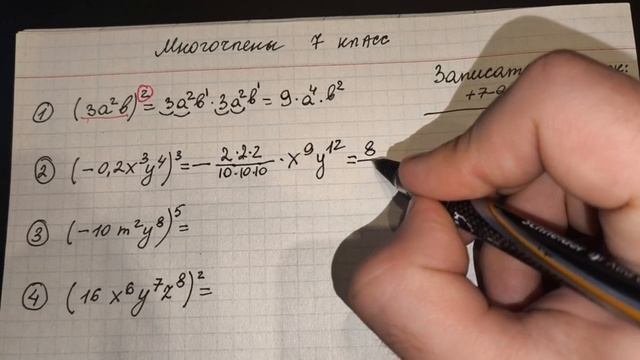 Многочлены 7 класс
Записат
+7-9
① (3a²b)² = 3a²b¹ · 3a²b¹ = 9 · a⁴ · b²
② (-0,2x³y⁴)³ = - 2·2·2/10·10·10 · x⁹y¹² = 8
③ (-10 m²y⁸)⁵ =
④ (16 x⁶y⁷z⁸)² =
Schneider